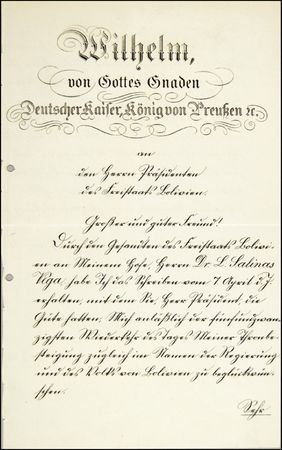 Wilhelm,
von Gottes Gnaden
Deutscher Kaiser, König von Preußen ꝛc.
an
den Herrn Präsidenten
des Freistaats Bolivien.
Großer und guter Freund!
Durch den Gesandten des Freistaats Bolivi-
en an Meinem Hofe, Herrn Dr. L. Salinas
Vega, habe Ich das Schreiben vom 7 April d. J.
erhalten, mit dem Sie, Herr Präsident, die
Güte hatten, Mich anläßlich der fünfundzwan-
zigsten Wiederkehr des Tages Meiner Thronbe-
steigung zugleich im Namen der Regierung
und des Volks von Bolivien zu beglückwün-
schen.
Sehr